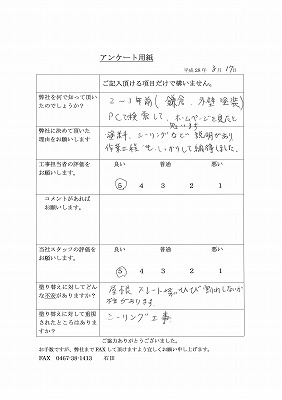 アンケート用紙
平成28年 8月17日
ご記入頂ける項目だけで構いません。
弊社を何で知って頂い
たのでしょうか？
2～3年前(鎌倉、外壁塗装)
PCで検索して、ホームページを見たと
思います
弊社に決めて頂いた
理由をお願いします
塗料、シーリングなど説明があり
作業工程も、しっかりして納得しました。
工事担当者の評価を
お願いします。
良い 普通 悪い
5 4 3 2 1
コメントがあれば
お願いします。
当社スタッフの評価を
お願いします。
良い 普通 悪い
5 4 3 2 1
塗り替えに対してどん
な不安がありますか？
屋根 スレート等のひび割れしないか
不安があります。
塗り替えに対して重視
されたところはありま
すか？
シーリング工事
ご協力ありがとうございました。
お手数ですが、弊社までFAXして頂けますよう宜しくお願い申し上げます。
FAX 0467-38-1413 石田